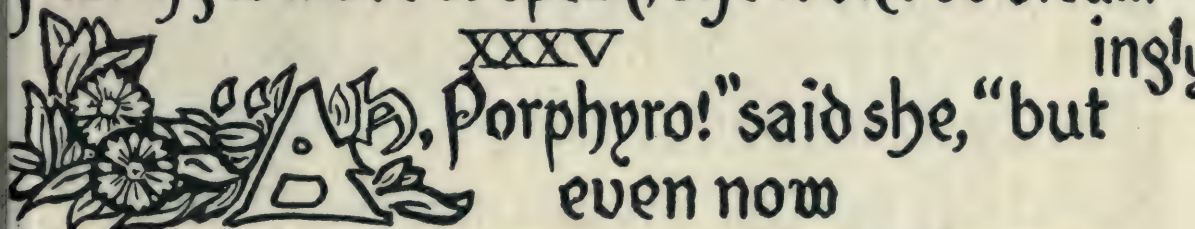 XXXV
ingly
Ah, Porphyro!" said she, "but
even now